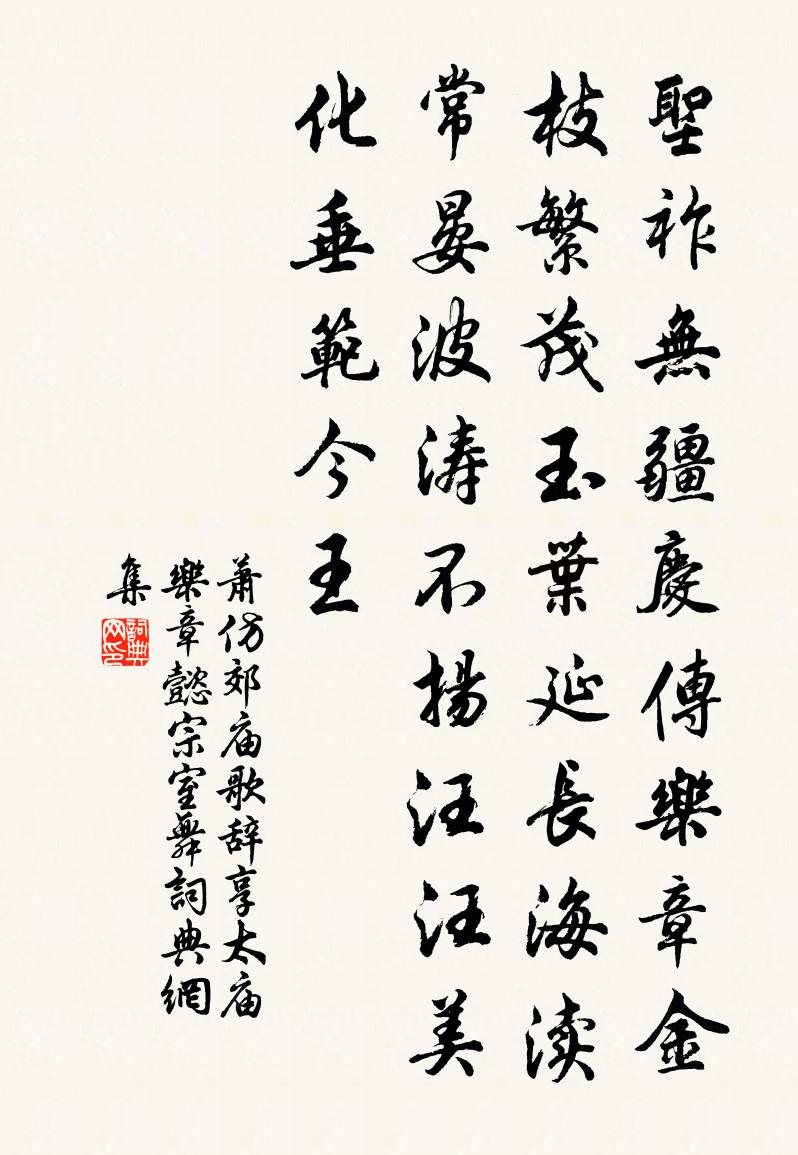 聖祚無疆慶傳樂章金
枝繁茂玉葉延長海渎
常晏波涛不揚汪汪美
化垂範今王
萧仿郊庙歌辞享太庙
樂章懿宗室舞詞典網
集
詞典网印